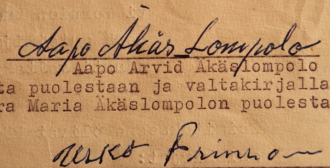 Aapo Äkäs Lompolo
Aapo Arvid Äkäslompolo
ta puolestaan ja valtakirjalla
ra Maria Äkäslompolon puolesta